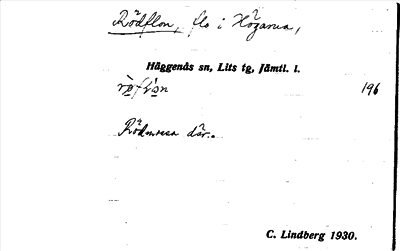 Rödflon, flo i Högarna,
Häggenås sn, Lits tg, Jämtl. l.
196
Rödmossa där.
C. Lindberg 1930.